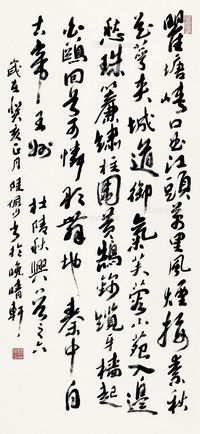 瞿塘峽口曲江頭萬里風煙接素秋
花萼夾城通御氣芙蓉小苑入邊
愁珠簾繡柱圍黃鵠錦纜牙檣起
白鷗回首可憐歌舞地秦中自
古帝王州 杜陵秋興八首之六
歲在癸亥正月陸儼少書於晚晴軒